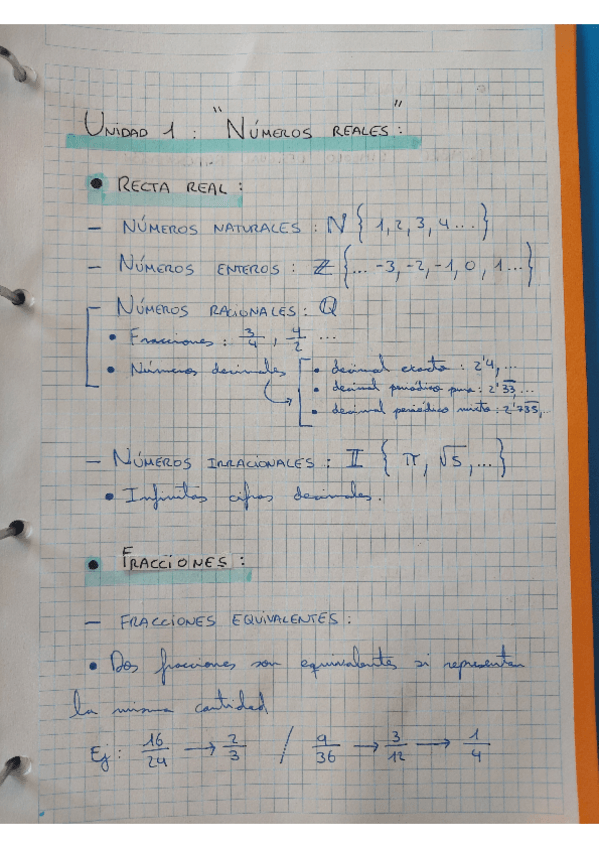 UNIDAD 1: "NÚMEROS REALES":
• RECTA REAL:
– NÚMEROS NATURALES: ℕ { 1, 2, 3, 4 ... }
– NÚMEROS ENTEROS: ℤ { ... -3, -2, -1, 0, 1 ... }
– NÚMEROS RACIONALES: ℚ
• Fracciones: 3/4, 4/2 ...
• Números decimales
• decimal exacto: 2'4, ...
• decimal periódico puro: 2'3̅3̅, ...
• decimal periódico mixto: 2'73̅5̅, ...
– NÚMEROS IRRACIONALES: 𝕀 { π, √5, ... }
• Infinitas cifras decimales.
• FRACCIONES:
– FRACCIONES EQUIVALENTES:
• Dos fracciones son equivalentes si representan
la misma cantidad
Ej: 16/24 → 2/3 / 9/36 → 3/12 → 1/4